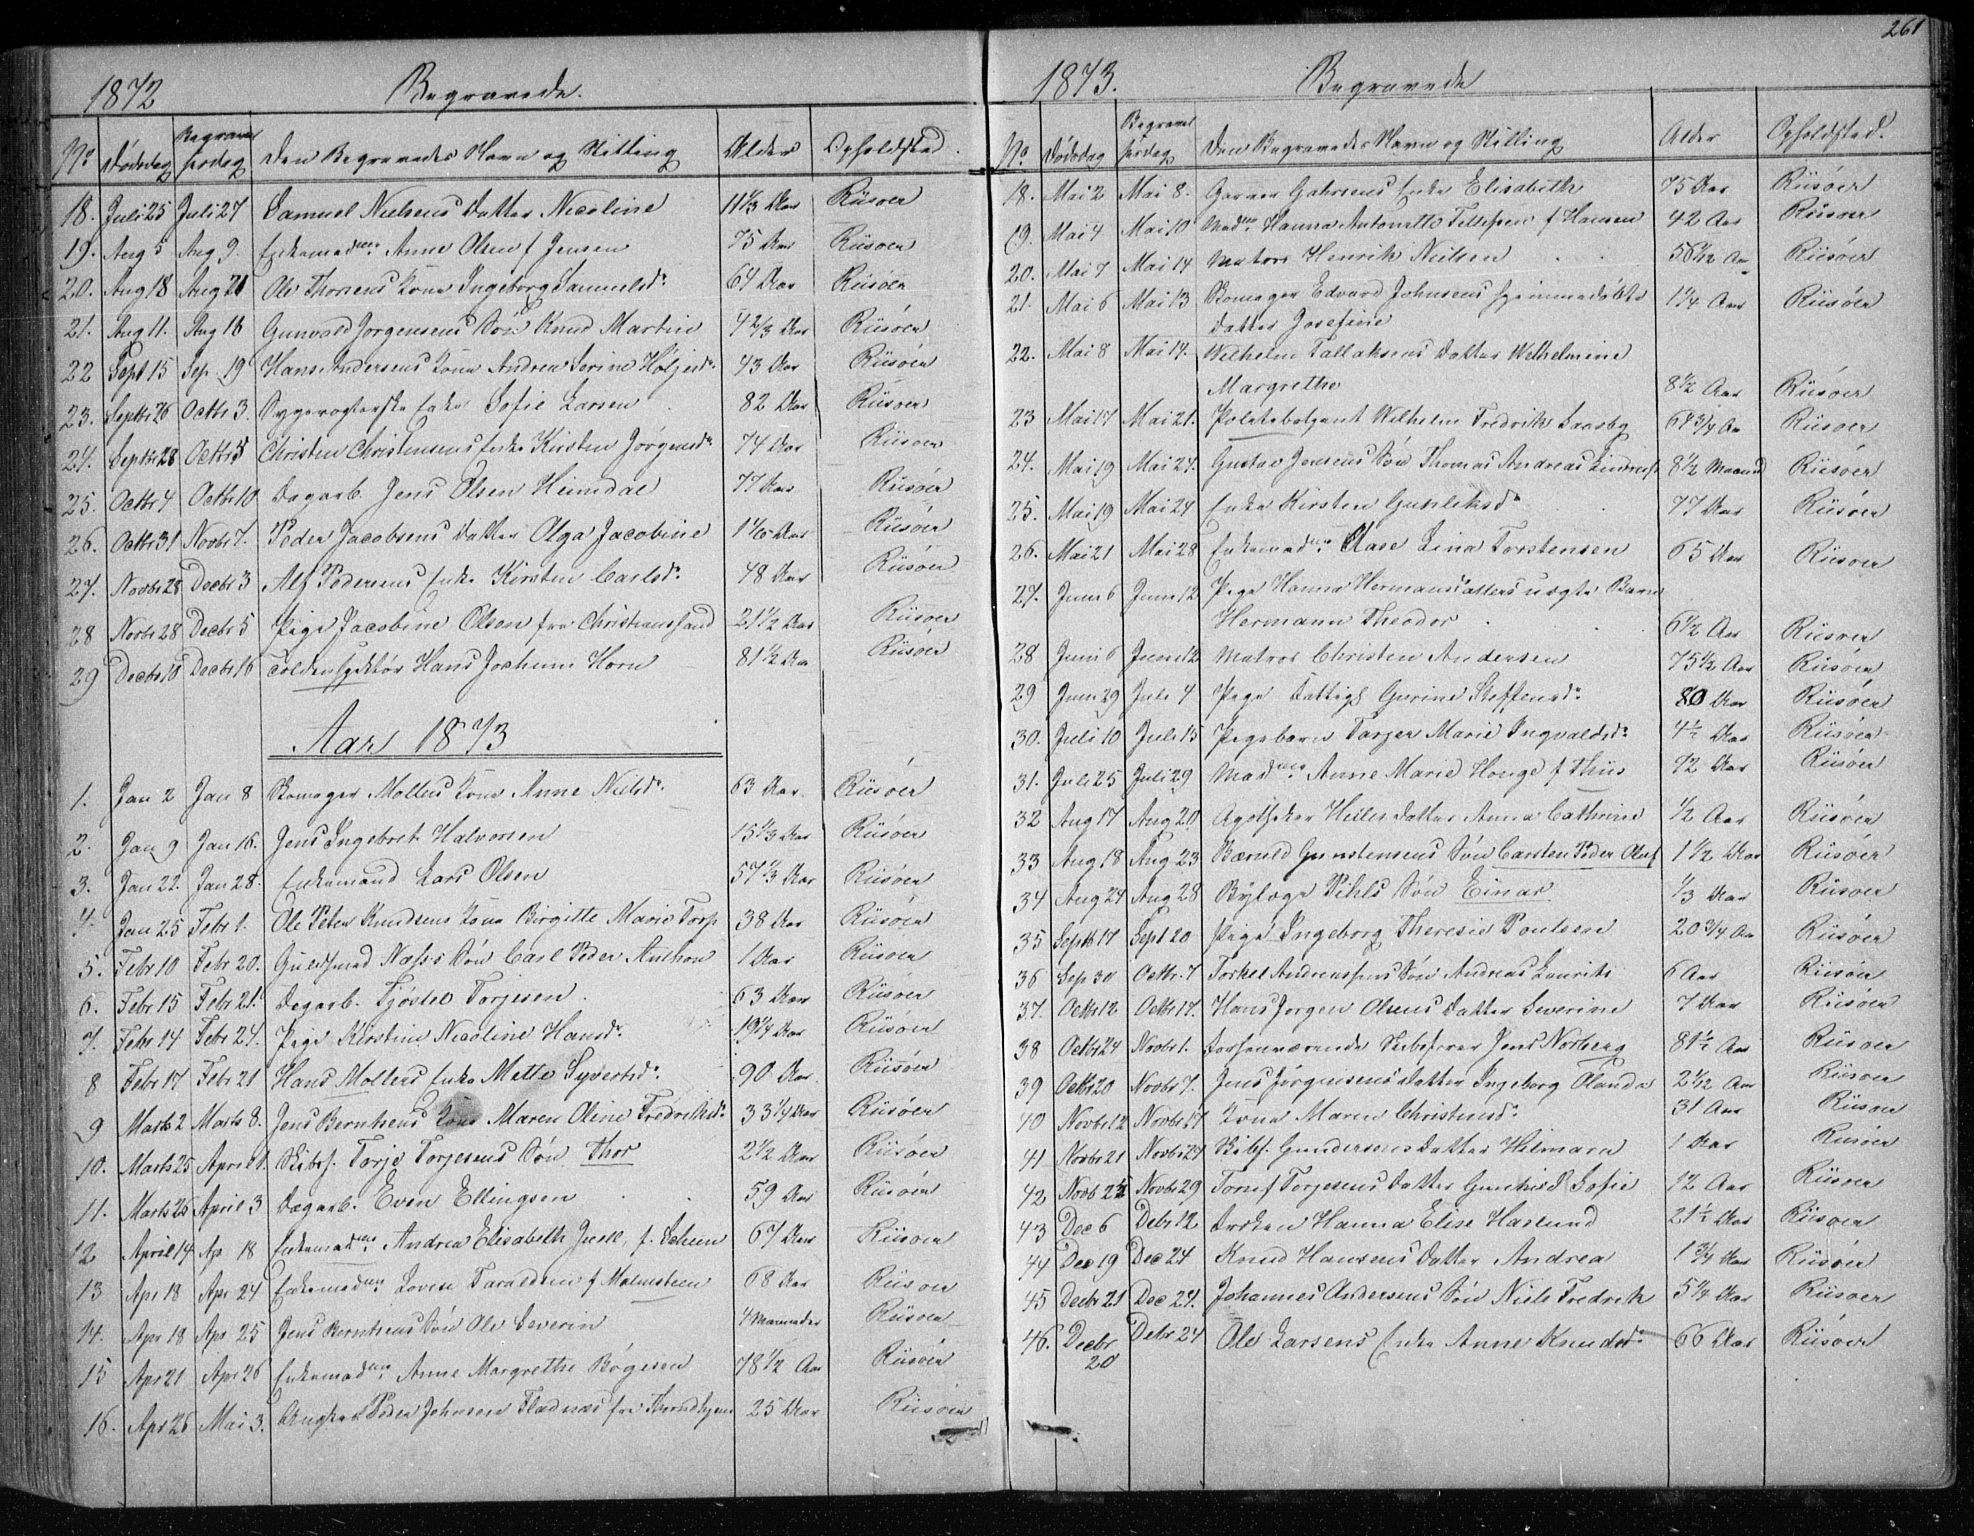 1872 Begravede.
No Dødsdag Begravelsesdag Den Begravedes Navn og Stilling Alder Opholdsted.
18. Juli 25 Juli 27 Samuel Nielsens Datter Nicoline 11 1/3 Aar Riisøer
19. Aug 5 Aug 9. Enkemadme. Anne Olsen f Jensen 75 Aar Riisøer
20. Aug 18 Aug 21 Ole Thorsens Kone Ingeborg Samuelsdr. 64 Aar Riisøer
21. Aug 11. Aug 16 Gunvald Jørgensens Søn Knud Martin 4 2/3 Aar Riisøer
22 Sept 15 Sep. 19 Hans Andersens Kone Andrea Serine Holjesdr. 43 Aar Riisøer
23. Septbr 26 Octbr 3. Sygevogterske Enke Sofie Larsen 82 Aar Riisøer
24. Septbr 28 Octbr 5 Christen Christensens Enke Kirsten Jørgensdr 74 Aar Riisøer
25. Octbr 4 Octbr 10 Dagarb. Jens Olsen Heimdal 77 Aar Riisøer
26. Octbr 31 Novbr 7. Peder Jacobsens Datter Olga Jacobine 1 1/6 Aar Riisøer
27. Novbr 28 Decbr 3 Alf Pedersens Enke Kirsten Carlsdr. 48 Aar Riisøer
28 Novbr 28 Decbr 5 Pige Jacobine Olsen fra Christianssand 21 1/2 Aar Riisøer
29 Decbr 10 Decbr 16 Toldinspektør Hans Jochum Horn 81 1/2 Aar Riisøer
Aar 1873
1. Jan 2 Jan 8 Bomager Mollers Kone Anne Nielsdr. 63 Aar Riisøer
2. Jan 9 Jan 16. Jens Ingebret Halvorsen 15 1/3 Aar Riisøer
3. Jan 22. Jan 28. Enkemand Lars Olsen 57 1/3 Aar Riisøer
4. Jan 25 Febr 1. Ole Peter Knudsens Kone Birgitte Marie Torp 38 Aar Riisøer
5. Febr 10 Febr 20. Guldsmed Næss's Søn Carl Peder Anthon 1 Aar Riisøer
6. Febr 15 Febr 21. Dagarb. Tjøstel Torjesen 63 Aar Riisøer
7. Febr 14 Febr 24. Pige Kirstine Nicoline Hansdr. 19 1/4 Aar Riisøer
8 Febr 17 Febr 21 Hans Mollers Enke Mette Syvertsdr. 90 Aar Riisøer
9 Marts 2 Marts 8. Jens Berntsens Kone Maren Oline Fredriksdr. 33 1/4 Aar Riisøer
10. Marts 25 April 1. Skibsf. Torje Torjesens Søn Thor 2 1/2 Aar Riisøer
11. Marts 25 April 3 Dagarb. Even Ellingsen 59 Aar Riisøer
12 April 14 Ap 18 Enkemadme. Andrea Elisabeth Juell, f. Schem 67 Aar Riisøer
13 Apr 18 Apr 24 Enkemadme. Lovise Taraldsen f Malmsteen 68 Aar Riisøer
14. Apr 18 Apr 25 Jens Berntsens Søn Ole Severin 4 Maaneder Riisøer
15 Apr 21 Apr 26 Enkemadme. Anne Margrethe Bøgesen 78 1/2 Aar Riisøer
16. Apr 26 Mai 3. Peder Johnsen Fladnæs fra Throndhjem 25 Aar Riisøer
261
1873. Begravede
No Dødsdag Begravelsesdag Den Begravedes Navn og Stilling Alder Opholdsted.
18. Mai 2 Mai 8. Garver Gahrsens Enke Elisabeth 75 Aar Riisøer
19. Mai 4 Mai 10 Madme. Hanna Antonette Tellefsen f Hansen 42 Aar Riisøer
20. Mai 7 Mai 14 Matros Henrik Nielsen 56 1/2 Aar Riisøer
21. Mai 6 Mai 13 Bomager Edvard Johnsens hjemmedøbte
Datter Josefine 1 1/4 Aar Riisøer
22. Mai 8 Mai 14. Wilhelm Tallaksens Datter Wilhelmine
Margrethe 8 1/2 Aar Riisøer
23 Mai 17 Mai 21. Politibetjent Wilhelm Fredrik Saasby 68 3/4 Aar Riisøer
24. Mai 19 Mai 24. Gustav Jensens Søn Thomas Andreas 8 1/2 Maaned Riisøer
25. Mai 19 Mai 24 Enke Kirsten Gunleksdr 77 Aar Riisøer
26. Mai 21 Mai 28 Enkemadme. Aase Lina Torstensen 65 Aar Riisøer
27. Juni 6 Juni 12 Pige Hanna Hermansdatters uægte Barn
Hermann Theodor 6 1/2 Aar Riisøer
28 Juni 6 Juni 12 Matros Christen Andersen 75 1/2 Aar Riisøer
29 Juni 29 Juli 4 Pige Fattigl Gurine Steffensdr 80 Aar Riisøer
30. Juli 10 Juli 15 Pigebarn Torjer Marie Ingvaldsdr. 4 1/2 Aar Riisøer
31. Juli 25 Juli 29 Madme. Anne Marie Houge f Thiis 72 Aar Riisøer
32 Aug 17 Aug 20 Apotheker Hilles Datter Anna Cathrine 1/2 Aar Riisøer
33 Aug 18 Aug 23 Bæruld Gunstensens Søn Carsten Peder Oluf 1 1/2 Aar Riisøer
34 Aug 24 Aug 28 Bylæge Pihls Søn Einar 1/3 Aar Riisøer
35 Septbr 17 Sept 20 Pige Ingeborg Theresie Poulsen 20 3/4 Aar Riisøer
36 Sep 30 Octbr. 7 Torkel Andreassens Søn Andreas Laurits 6 Aar Riisøer
37. Octbr 12 Octbr 17. Hans Jørgen Olsens Datter Severine 7 Aar Riisøer
38 Octbr 24 Novbr 1. Forhenværende Skibsfører Jens Norberg 81 1/2 Aar Riisøer
39 Octbr 20 Novbr 7. Jens Jørgensens Datter Ingeborg Olanda 2 1/2 Aar Riisøer
40 Novbr 12 Novbr 17 Kone Maren Christensdr. 31 Aar Riisøer
41 Novbr 21 Novbr 27 Skibsf. Gundersens Datter Hilmara 1 Aar Riisøer
42 Novb 22 Novbr 29 Tomes Torjesens Datter Gunhild Sofie 12 Aar Riisøer
43 Dec 6 Debr 12 Frøken Hanna Elise Haslund 21 1/2 Aar Riisøer
44 Dec 19 Dec 24 Knud Hansens Datter Andrea 1 3/4 Aar Riisøer
45 Decbr 21 Dec 24. Johannes Andersens Søn Niels Fredrik 5 1/4 Aar Riisøer
46. Decbr 20 Debr 24 Ole Larsens Enke Anne Knudsdr. 66 Aar Riisøer